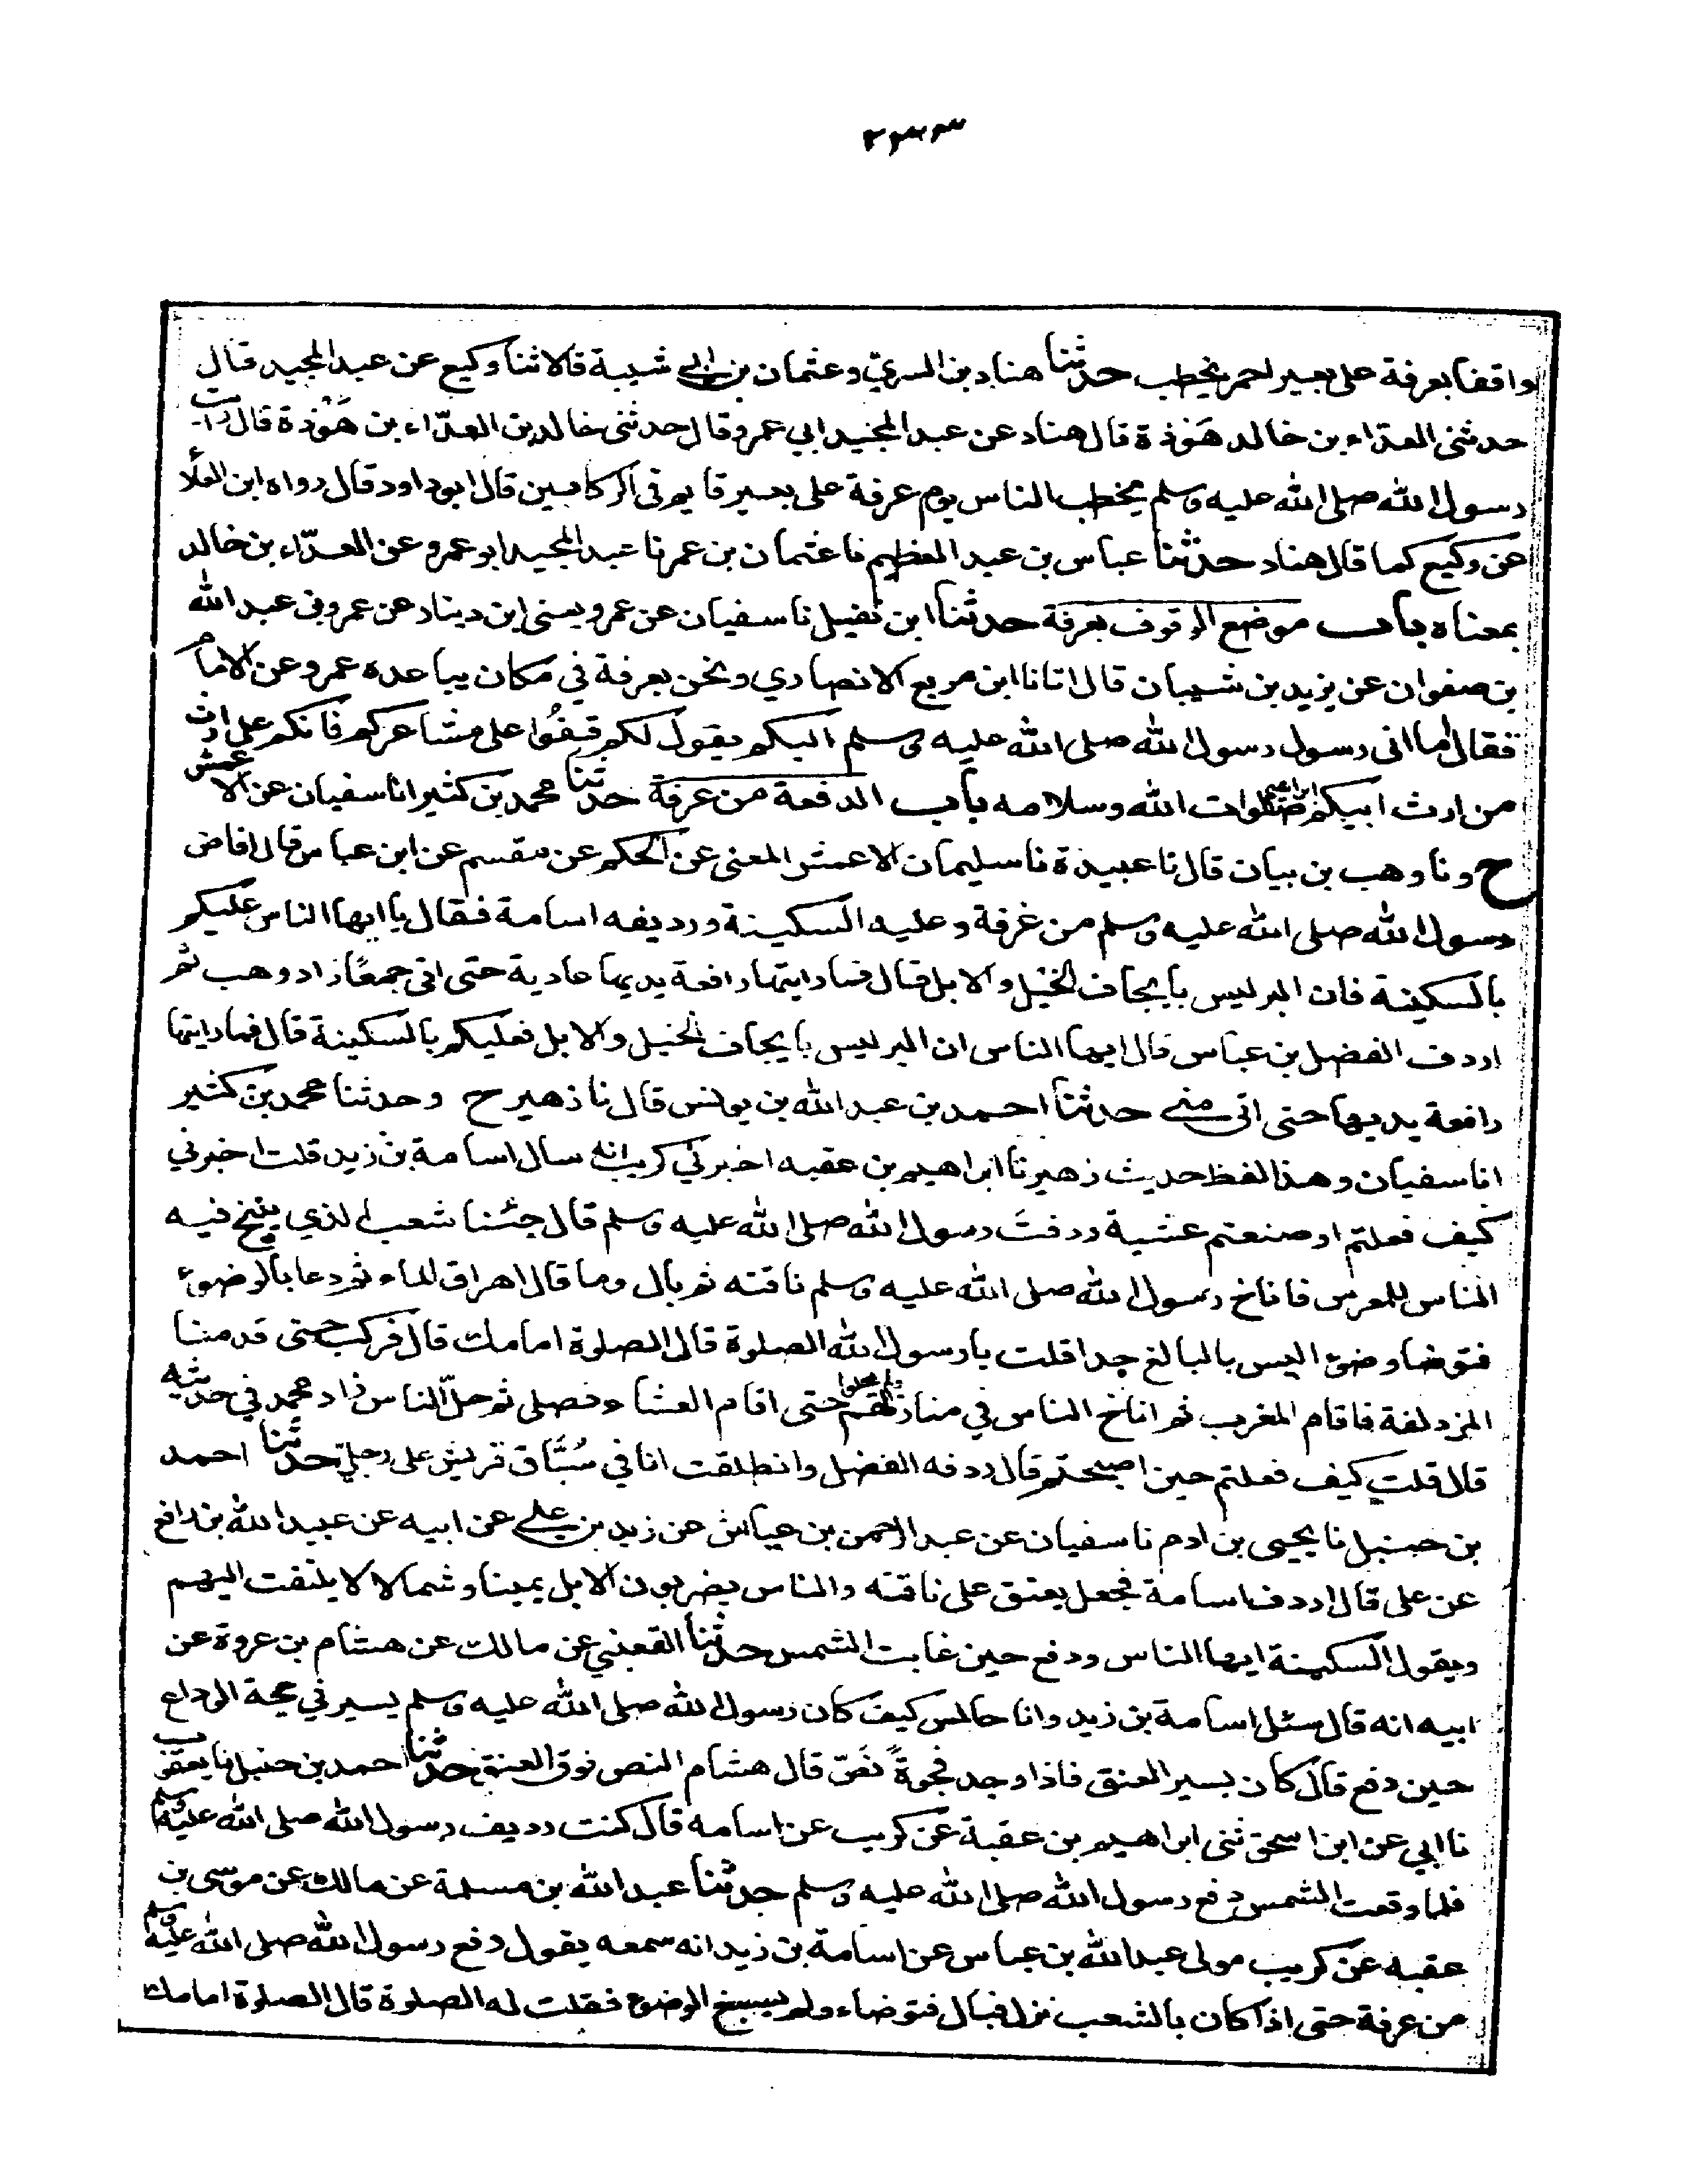 ٢٣٣
واقفا بعرفة على بعير احمر يخطب حدثنا هناد بن السري وعثمان بن ابي شيبة قالا ثنا وكيع عن عبد المجيد قال
حدثنى العداء بن خالد هَوْذة قال هناد عن عبد المجيد ابي عمرو قال حدثنى خالد بن العدّاء بن هَوْذة قال رايت
رسول الله صلى الله عليه وسلم يخطب الناس يوم عرفة على بعير قايم فى الركابين قال ابو داود قال رواه ابن العلاء
عن وكيع كما قال هناد حدثنا عباس بن عبد العظيم نا عثمان بن عمر نا عبد المجيد ابو عمرو عن العدّاء بن خالد
بمعناه باب موضع الوقوف بعرفة حدثنا ابن نفيل نا سفيان عن عمرو يعنى ابن دينار عن عمرو بن عبد الله
بن صفوان عن يزيد بن شيبان قال اتانا ابن مربع الانصاري ونحن بعرفة في مكان يباعده عمرو عن الامام
فقال اما انى رسول رسول الله صلى الله عليه وسلم اليكم يقول لكم قِفُوا على مشاعركم فانكم على ارث
من ارث ابيكم ابراهيم صلوات الله وسلامه باب الدفعة من عرفة حدثنا محمد بن كثير انا سفيان عن الاعمش
ح ونا وهب بن بيان قال نا عبيدة نا سليمان الاعمش المعنى عن الحكم عن مقسم عن ابن عباس قال افاض
رسول الله صلى الله عليه وسلم من عرفة وعليه السكينة ورديفه اسامة فقال يا ايها الناس عليكم
بالسكينة فان البر ليس بايجاف الخيل والابل قال فما رايتها رافعة يديها عادية حتى اتى جمعًا زاد وهب ثم
اردف الفضل بن عباس قال ايها الناس ان البر ليس بايجاف الخيل والابل فعليكم بالسكينة قال فما رايتها
رافعة يديها حتى اتى منى حدثنا احمد بن عبد الله بن يونس قال نا زهير ح وحدثنا محمد بن كثير
انا سفيان وهذا لفظ حديث زهير نا ابراهيم بن عقبه اخبرني كريب انه سال اسامة بن زيد قلت اخبرني
كيف فعلتم او صنعتم عشية ردفتَ رسول الله صلى الله عليه وسلم قال جئنا شعب الذي ينيخ فيه
الناس للمعرس فاناخ رسول الله صلى الله عليه وسلم ناقته ثم بال وما قال اهراق الماء ثم دعا بالوضوء
فتوضا وضوء اليس بالبالغ جدا قلت يا رسول الله الصلوة قال الصلوة امامك قال فركب حتى قدمنا
المزدلفة فاقام المغرب ثم اناخ الناس في منازلهم ولم يحلوا حتى اقام العشا وفصلى ثم حلّ الناس زاد محمد في حديثه
قال قلت كيف فعلتم حين اصبحتم قال ردفه الفضل وانطلقت انا في سُبَّاق قريش على رجلي حدثنا احمد
بن حنبل نا يحيى بن ادم نا سفيان عن عبد الرحمن بن عياش عن زيد بن علي عن ابيه عن عبيد الله بن رافع
عن على قال اردف اسامة فجعل يعنق على ناقته والناس يضربون الابل يمينا وشمالا لا يلتفت اليهم
ويقول السكينة ايها الناس ودفع حين غابت الشمس حدثنا القعنبي عن مالك عن هشام بن عروة عن
ابيه انه قال سئل اسامة بن زيد وانا جالس كيف كان رسول الله صلى الله عليه وسلم يسير في حجة الوداع
حين دفع قال كان يسير العنق فاذا وجد فجوةً نَصّ قال هشام النص فوق العنق حدثنا احمد بن حنبل نا يعقوب
نا ابي عن ابن اسحق ثنى ابراهيم بن عقبة عن كريب عن اسامه قال كنت رديف رسول الله صلى الله عليه وسلم
فلما وقعت الشمس دفع رسول الله صلى الله عليه وسلم حدثنا عبد الله بن مسلمة عن مالك عن موسى بن
عقبه عن كريب مولى عبد الله بن عباس عن اسامة بن زيد انه سمعه يقول دفع رسول الله صلى الله عليه وسلم
من عرفة حتى اذا كان بالشعب نزل فبال فتوضاء ولم يسبغ الوضوء فقلت له الصلوة قال الصلوة امامك